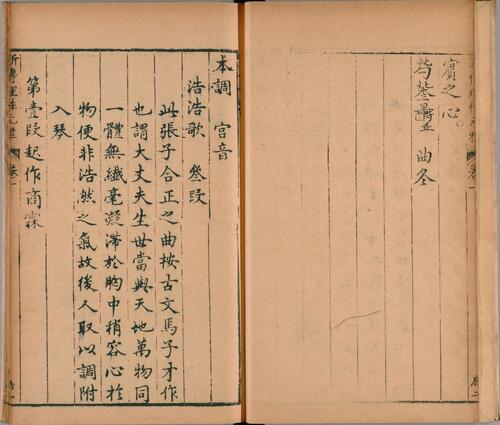 賓之心
曲冬
本調 宮音
浩浩歌 叄段
此張子合正之曲按古文馬子才作
也謂大丈夫生世當與天地萬物同
一體無纖毫凝滯於胸中稍容心於
物便非浩然之氣故後人取以調附
入琴
第壹段起作商霖
新傳理性元雅 卷一